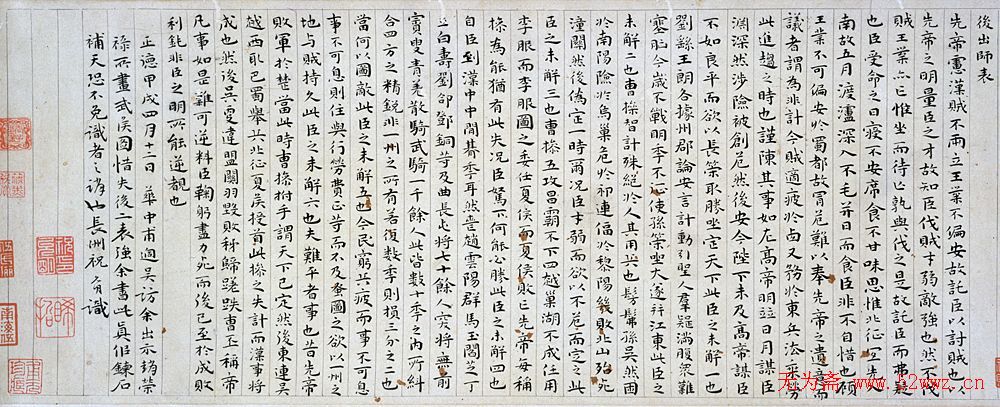 後出師表
先帝慮漢賊不兩立王業不偏安故託臣以討賊也以
先帝之明量臣之才故知臣伐賊才弱敵強也然不伐
賊王業亦亡惟坐而待亡孰與伐之是故託臣而弗疑
也臣受命之日寢不安席食不甘味思惟北征宜先入
南故五月渡瀘深入不毛并日而食臣非不自惜也顧
王業不可偏安於蜀都故冒危難以奉先帝之遺意而
議者謂為非計今賊適疲於西又務於東兵法乘勞
此進趨之時也謹陳其事如左高帝明並日月謀臣
淵深然涉險被創危然後安今陛下未及高帝謀臣
不如良平而欲以長策取勝坐定天下此臣之未解一也
劉繇王朗各據州郡論安言計動引聖人羣疑滿腹眾難
塞胸今歲不戰明年不征使孫策坐大遂并江東此臣之
未解二也曹操智計殊絕於人其用兵也髣髴孫吳然困
於南陽險於烏巢危於祁連偪於黎陽幾敗北山殆死
潼關然後偽定一時爾況臣才弱而欲以不危而定之此
臣之未解三也曹操五攻昌霸不下四越巢湖不成任用
李服而李服圖之委任夏侯而夏侯敗亡先帝每稱
操為能猶有此失況臣駑下何能必勝此臣之未解四也
自臣到漢中中間朞年耳然喪趙雲陽群馬玉閻芝丁
立白壽劉郃鄧銅等及曲長屯將七十餘人突將無前
賨叟青羌散騎武騎一千餘人此皆數十年之內所糾
合四方之精銳非一州之所有若復數年則損三分之二也
當何以圖敵此臣之未解五也今民窮兵疲而事不可息
事不可息則住與行勞費正等而不及蚤圖之欲以一州之
地与賊持久此臣之未解六也夫難平者事也昔先帝
敗軍於楚當此時曹操拊手謂天下已定然後東連吳
越西取巴蜀舉兵北征夏侯授首此操之失計而漢事將
成也然後吳更違盟關羽毀敗秭歸蹉跌曹丕稱帝
凡事如是難可逆料臣鞠躬盡力死而後已至於成敗
利鈍非臣之明所能逆覩也
正德甲戌四月十二日華中甫過吳訪余出示趙榮
祿所畫武侯圖惜失後二表強余書此真作鍊石
補天恐不免識者之誚也長洲祝允明識
天为斋 www.52wwz.cn